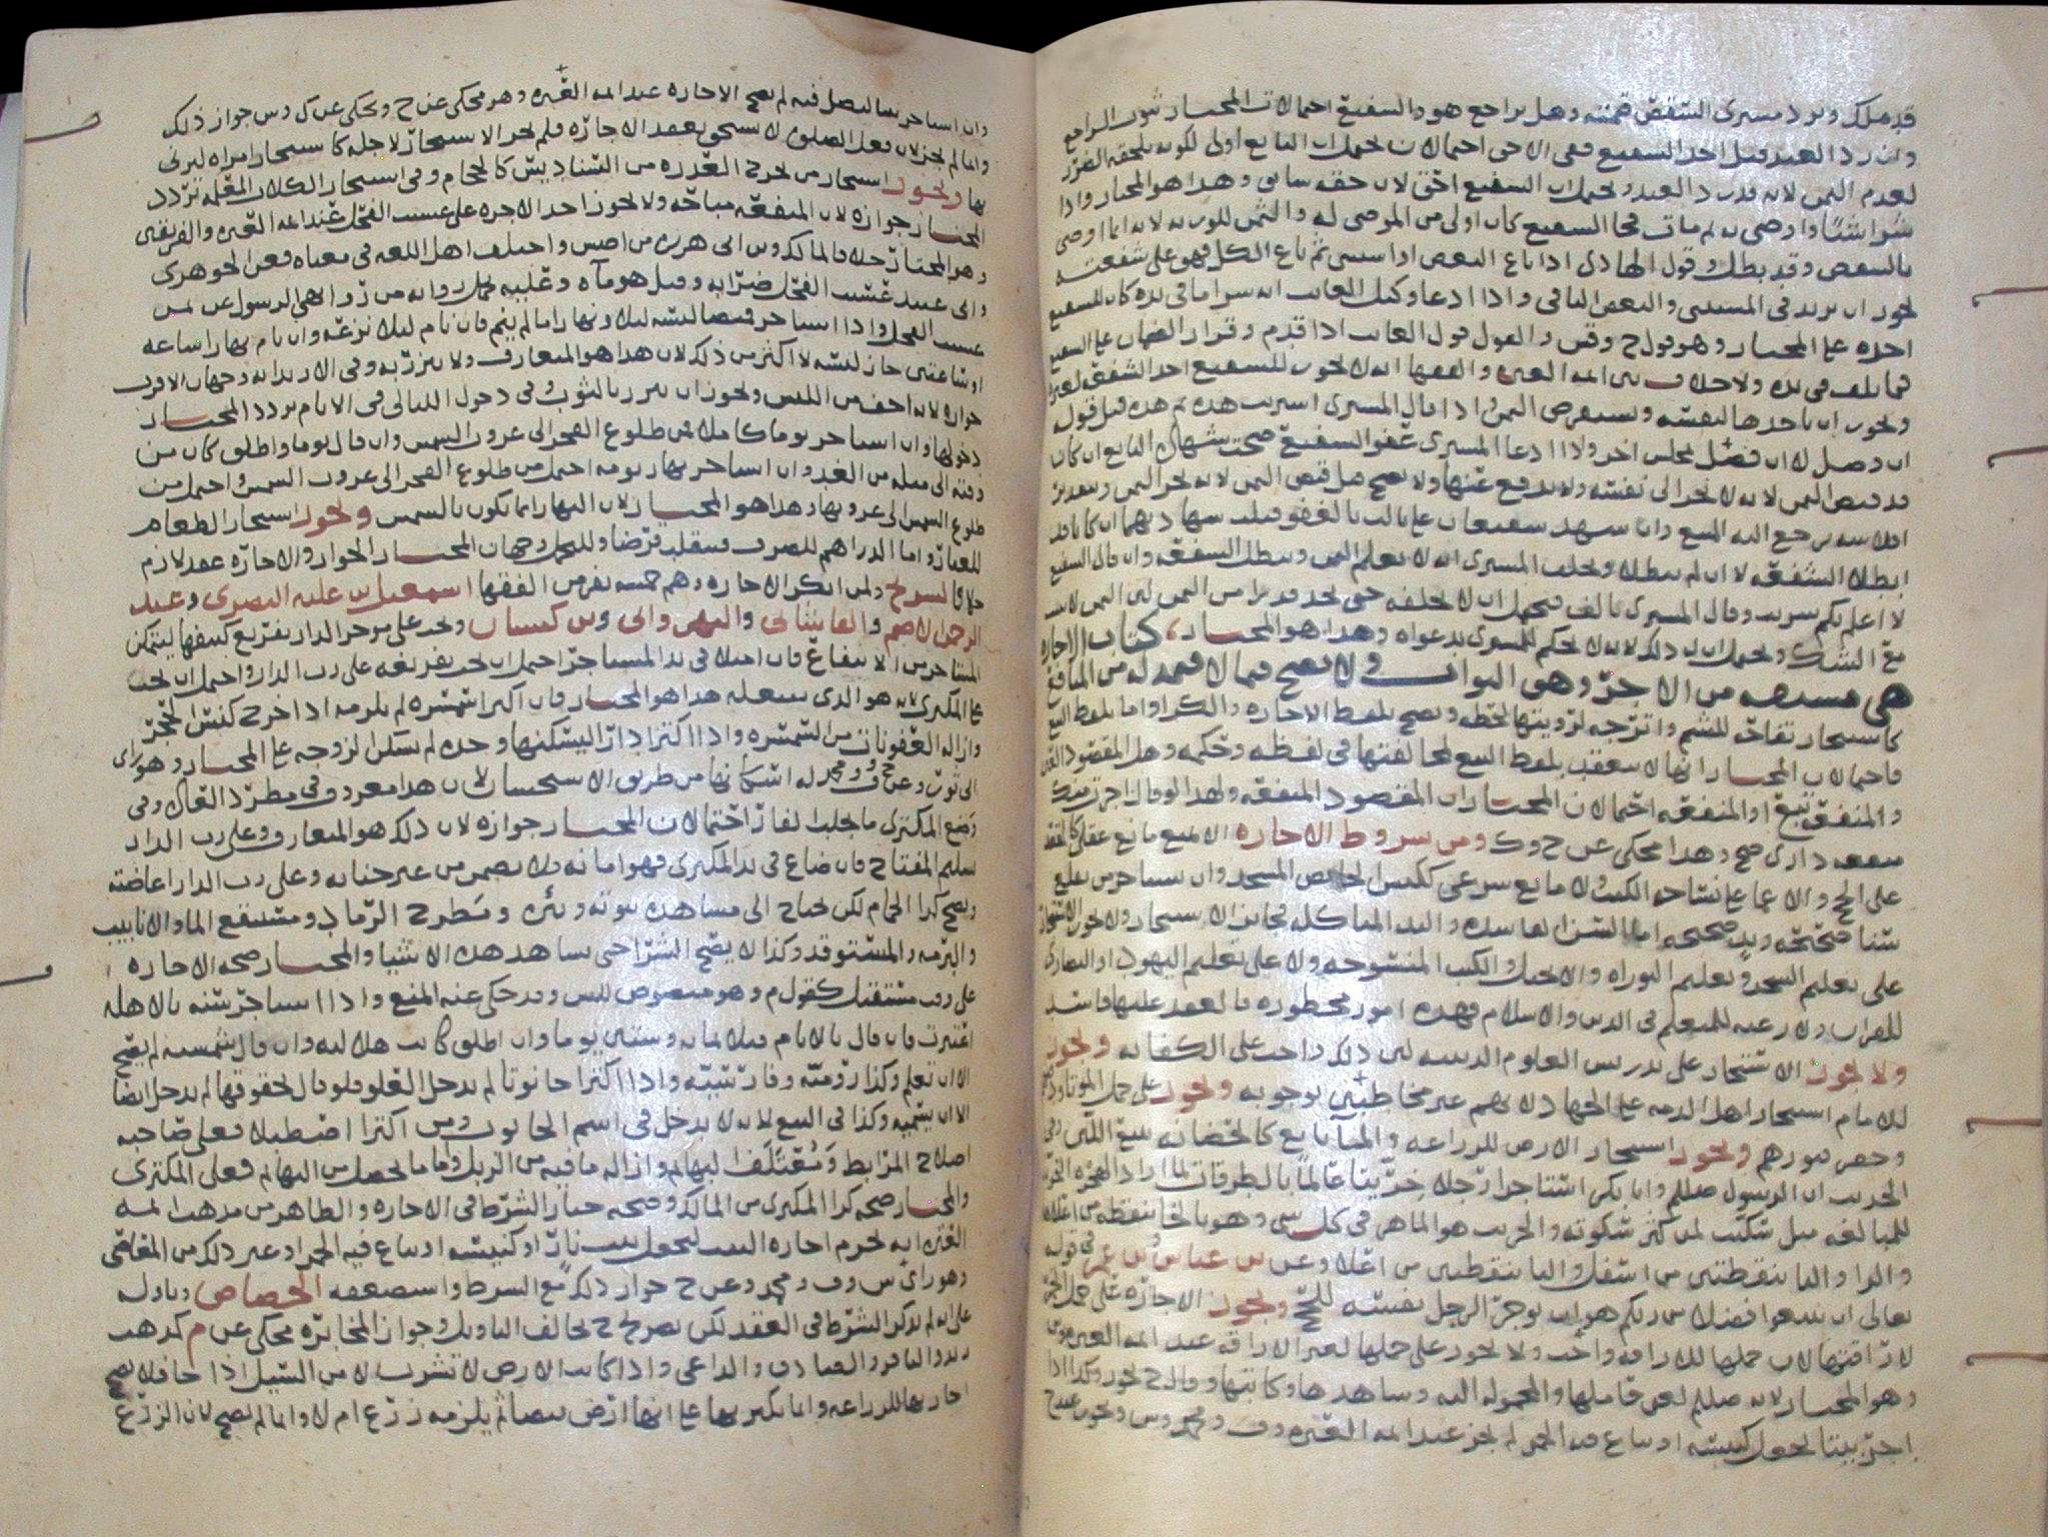 قد ملك ويرد مسترى الشقص قيمته وهل يراجع هو والشفيع احتمالات المختار ثبوت التراجع
وان رد العبد قبل اخذ الشفيع ففي الاخرى احتمالان يحتمل ان البايع اولى لكونه يلحقه الضرر
لعدم الثمن لانه قد رد العبد ويحتمل ان الشفيع احق لان حقه سابق وهذا هو المختار واذا
شرا شقصا واوصى به ثم مات فجا الشفيع كان اولى من الموصى له والثمن للورثه لانه انما اوصى
بالشقص وقد بطل وقول الهادي اذا باع البعض او استثنى ثم باع الكل فهو على شفعته
يجوز ان يريد في المستثنى والبعض الباقي واذا ادعا وكيل الغايب انه شرا ما في يده كان للشفيع
اخذه على المختار وهو قول ح وقش والقول قول الغايب اذا قدم وقرار الضمان على الشفيع
فيما تلف في يده ولا خلاف بين ايمه العتره والفقها انه لا يجوز للشفيع اخذ الشفعه لغيره
ويجوز ان ياخذها لنفسه ويستقرض الثمن واذا قال المشتري اشتريت هذه ثم هذه قبل قوله
ان وصل لا ان فصل بمجلس اخر ولا اذا ادعا المشتري عفو الشفيع صحت شهاده البايع ان كان
قد قبض الثمن لانه لا يجر الى نفسه ولا يدفع عنها ولا تصح قبل قبض الثمن لانه يجر الثمن وبتعذر
افلاسه يرجع اليه المبيع وان شهد شفيعان على ثالث بالعفو قبلت شهادتهما ان كانا قد
ابطلا الشفعه لا ان لم يبطلا ويحلف المشتري انه لا يعلم الثمن وتبطل الشفعه وان قال الشفيع
لا اعلم بكم شريت وقال المشتري بالف فيحتمل ان لا يحلفه حتى يحد قدرا من الثمن لان الثمن لاسـ
مع الشك ويحتمل ان له ذلك لانه لا يحكم للمشتري بدعواه وهذا هو المختار، كتاب الاجاره
هي مشتقه من الاجر وهو الثواب ولا تصح فيما لا قيمه له من المنافع
كاستيجار تفاحه للشم واترجه لرؤيتها لحظه وتصح بلفظ الاجاره والكرا واما بلفظ البيع
فاحتمالان المختار انها لا تنعقد بلفظ البيع لمخالفتها في لفظه وحكمه وهل المقصود العين
والمنفعه تتبع او المنفعه احتمالان المختار ان المقصود المنفعه ولهذا لو قال اجرتك
منفعه داري صح وهذا محكي عن ح وك ومن شروط الاجاره الا يمنع مانع عقلي كالمقعد
على الحج والاعما على نساخه الكتب ولا مانع شرعي ككنس الحايض المسجد وان استاجر من يقلع
سنا صحيحه ويد صحيحه اما السن الفاسده واليد المتاكله فجايز الاستيجار ولا يجوز الاستيجار
على تعليم السحر وتعليم التوراه والانجيل والكتب المنسوخه ولا على تعليم اليهود او النصارى
للقران ولا رغبه للمتعلم في الدين والاسلام فهذه امور محظوره فالعقد عليها فاسد
ولا يجوز الاستيجار على تدريس العلوم الدينيه لان ذلك واجب على الكفايه ويجوز
للامام استيجار اهل الذمه على الجهاد لانهم غير مخاطبين بوجوبه ويجوز على حمل الموتى
وحفر قبورهم ويجوز استيجار الارض للزراعه والمنابايع كالحضانه تتبع اللبن وفي
الحديث ان الرسول صللم وابا بكر استاجرا رجلا خريتا عالما بالطرقات لما اراد الهجره الخرـ
للمبالغه مثل سكيت لمن كثر سكوته والخريت هو الماهر في كل شي وهو بالخا بنقطه من اعلاه
والرا واليا بنقطتين من اسفل والتا بنقطتين من اعلا وعن بن عباس وبن عمر في قوله
تعالى ان تبتغوا فضلا من ربكم هو ان يوجر الرجل نفسه للحج ويجوز الاجاره على حمل الخمر
لاراقتها لان حملها للاراقه واجب ولا يجوز على حملها لغير الاراقه عند ايمه العتره وف
وهو المختار لانه صللم لعن حاملها والمحموله اليه وشاهدها وكاتبها وقال ح يجوز وكذا اذا
اجر بيتا يجعل كنيسه او يباع فيه الخمر لم يجز عند ايمه العتره وف ومحمد وش ويجوز عند ح
وان استاجر بيتا ليصلي فيه لم تصح الاجاره عند ايمه العتره وهو محكي عن ح ويحكى عن ك وش جواز ذلك
وانما لم يجز لان فعل الصلوه لا يستحق بعقد الاجاره فلم يجز الاستيجار لاجله كاستيجار امراه ليزني
بها ويجوز استيجار من يخرج القذره من السناديس كالحجام وفي استيجار الكلاب المعلمه تردد
المختار جوازه لان المنفعه مباحه ولا يجوز اخذ الاجره على عسب الفحل عند ايمه العتره والفريقين
وهو المختار خلافا لمالك وبن ابي هريره من اصش واختلف اهل اللغه في معناه فعن الجوهري
وابي عبيد عسب الفحل ضرابه وقيل هو ماه وعليه تحمل روايه من روى نهى الرسول عن ثمن
عسب الفحل واذا استاجر قميصا لبسه ليلا ونهارا ما لم ينم فان نام ليلا نزعه وان نام نهارا ساعه
او ساعتين جاز لبسه لا اكثر من ذلك لان هذا هو المتعارف ولا يتزر به وفي الارتدا به وجهان الاقرب
جوازه لانه اخف من اللبس ويجوز ان يتزر بالثوب وفي دخول الليالي في الايام تردد المختار
دخولها وان استاجر يوما كاملا فمن طلوع الفجر الى غروب الشمس وان قال يوما واطلق كان من
وقته الى مثله من الغد وان استاجر نهار يومه احتمل من طلوع الفجر الى غروب الشمس واحتمل من
طلوع الشمس الى غروبها وهذا هو المختار لان النهار انما يكون بالشمس ويجوز استيجار الطعام
للعيار واما الدراهم للصرف فينقلب قرضا وللتجمل وجهان المختار الجواز والاجاره عقد لازم
خلافا لشريح ولمن انكر الاجاره وهم خمسه نفر من الفقها اسمعيل بن عليه البصري وعبد
الرحمن الاصم والقاشاني والنهرواني وبن كيسان ويجب على موجر الدار تفريغ كنيفها ليتمكن
المستاجر من الانتفاع فان امتلا في يد المستاجر احتمل ان يجب تفريغه على رب الدار واحتمل ان يجب
على المكتري لانه هو الذي شغله هذا هو المختار فان اكترا شهرا لم يلزمه اذا خرج كنس الحجر
وازاله العفونات من الشمسره واذا اكترا دارا ليسكنها وحده لم يسكن الزوجه على المختار وهو راي
ابي ثور وعن ح وف ومحمد له اسكانها من طريق الاستحسان لان هذا معروف وفي مطرد العاده وفي
وضع المكتري ما يجلب الفار احتمالان المختار جوازه لان ذلك هو المتعارف وعلى رب الدار
تسليم المفتاح فان ضاع في يد المكتري فهو امانه فلا يضمن من غير جنايه وعلى رب الدار اعاضته
ويصح كرا الحمام لكن يحتاج الى مشاهده بيوته وبئره ومطرح الرماد ومستنقع الما والانابيب
والبرمه والمستوقد وكذا لا يصح الشرا حتى يشاهد هذه الاشيا والمختار صحه الاجاره
على وقت مستقبل كقول م وهو منصوص للش وقد حكي عنه المنع واذا استاجر سنه بالاهله
اعتبرت فان قال بالايام فثلاثمايه وستين يوما وان اطلق كانت هلاليه وان قال شمسيه لم يصح
الا ان تعلم وكذا روميه وفارسيه واذا اكترا حانوتا لم يدخل العلو فلو قال بحقوقها لم يدخل ايضا
الا ان يسميه وكذا في البيع لانه لا يدخل في اسم الحانوت ومن اكترا اصطبلا فعلى صاحبه
اصلاح المرابط ومعتلفا لبهايم وازاله ما فيه من الزبل واما ما يحصل من البهايم فعلى المكتري
والمختار صحه كرا المكتري من المالك وصحه خيار الشرط في الاجاره والظاهر من مذهب ايمه
العتره انه يحرم اجاره البيت ليجعل بيت نار او كنيسه او يباع فيه الخمر او غير ذلك من المعاصي
وهو راي ش وف ومحمد وعن ح جواز ذلك مع الشرط واستضعفه الجصاص وتاوله
على انه لم يذكر الشرط في العقد لكن تصريح ح يخالف التاويل وجواز المخابره محكي عن م كمذهب
زيد والباقر والصادق والداعي واذا كانت الارض لا تشرب الا من السيل اذا جا فلا تصح
اجارتها للزراعه وانما يكتريها على انها ارض بيضا ثم يلزمه زرع ام لا وانما لم تصح لان الزرع